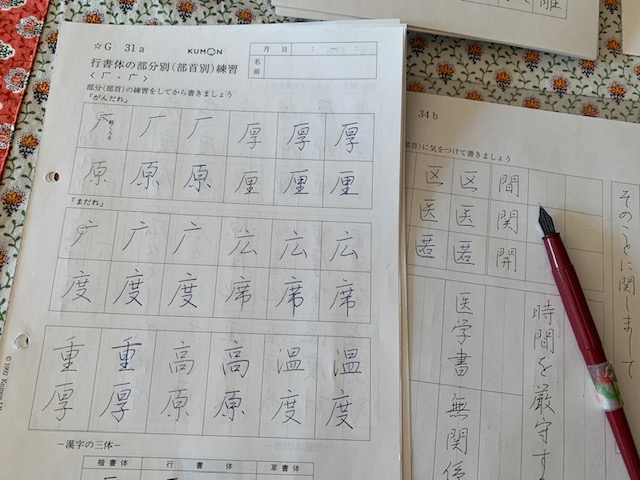 ☆G 31a
KUMON
月 日 : ～ :
名前
行書体の部分別(部首別)練習
<厂・广>
部分(部首)の練習をしてから書きましょう
「がんだれ」
厂 厂 厂 厚 厚 厚
原 原 原 厘 厘 厘
「まだれ」
广 广 广 広 広 広
度 度 度 席 席 席
重 重 高 高 温 温
厚 厚 原 原 度 度
―漢字の三体―
楷書体 行書体 草書体
34b
に気をつけて書きましょう
区 区 間
医 医 関
匿 匿 開
そのことに関しまして
時間を厳守す
医学書 無関係